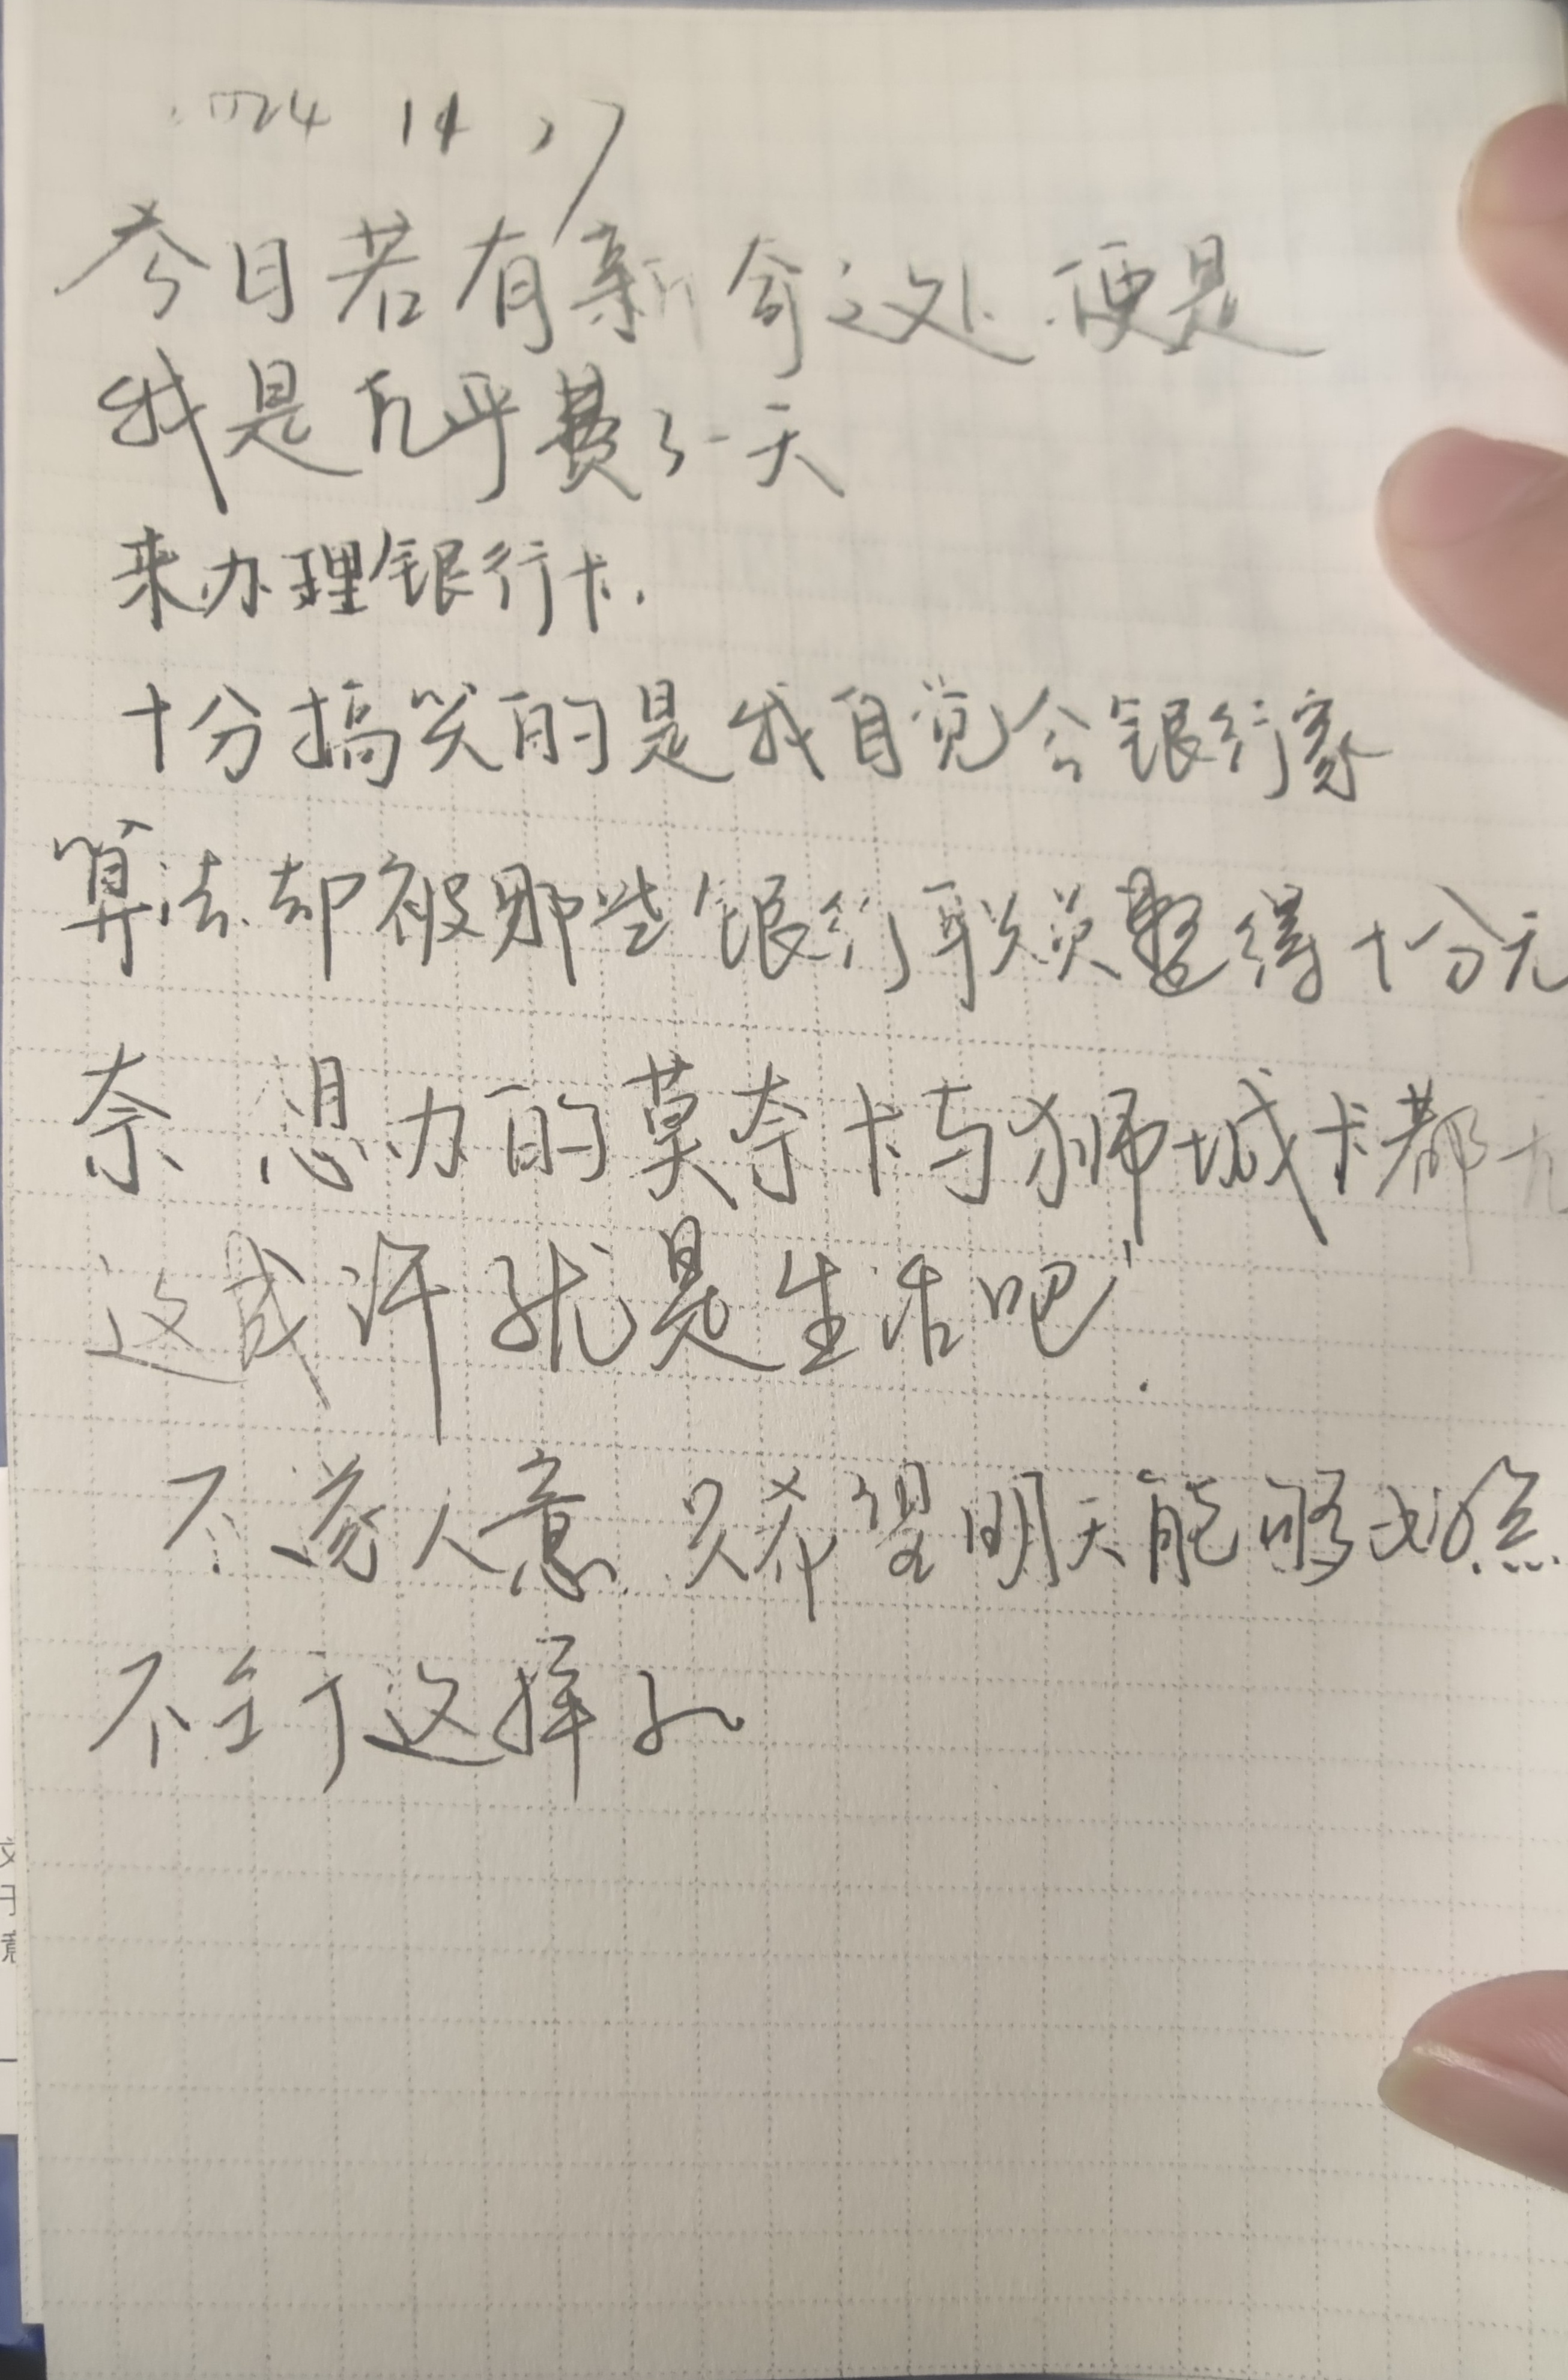 2024 11 27
今日若有新奇之处.便是
我是几乎费了一天
来办理银行卡.
十分搞笑的是我自觉会银行家
算法却被那些银行职员整得十分无
奈 想办的莫奈卡与狮城卡都
这或许就是生活吧!
不遂人意.只希望明天能够
不至于这样